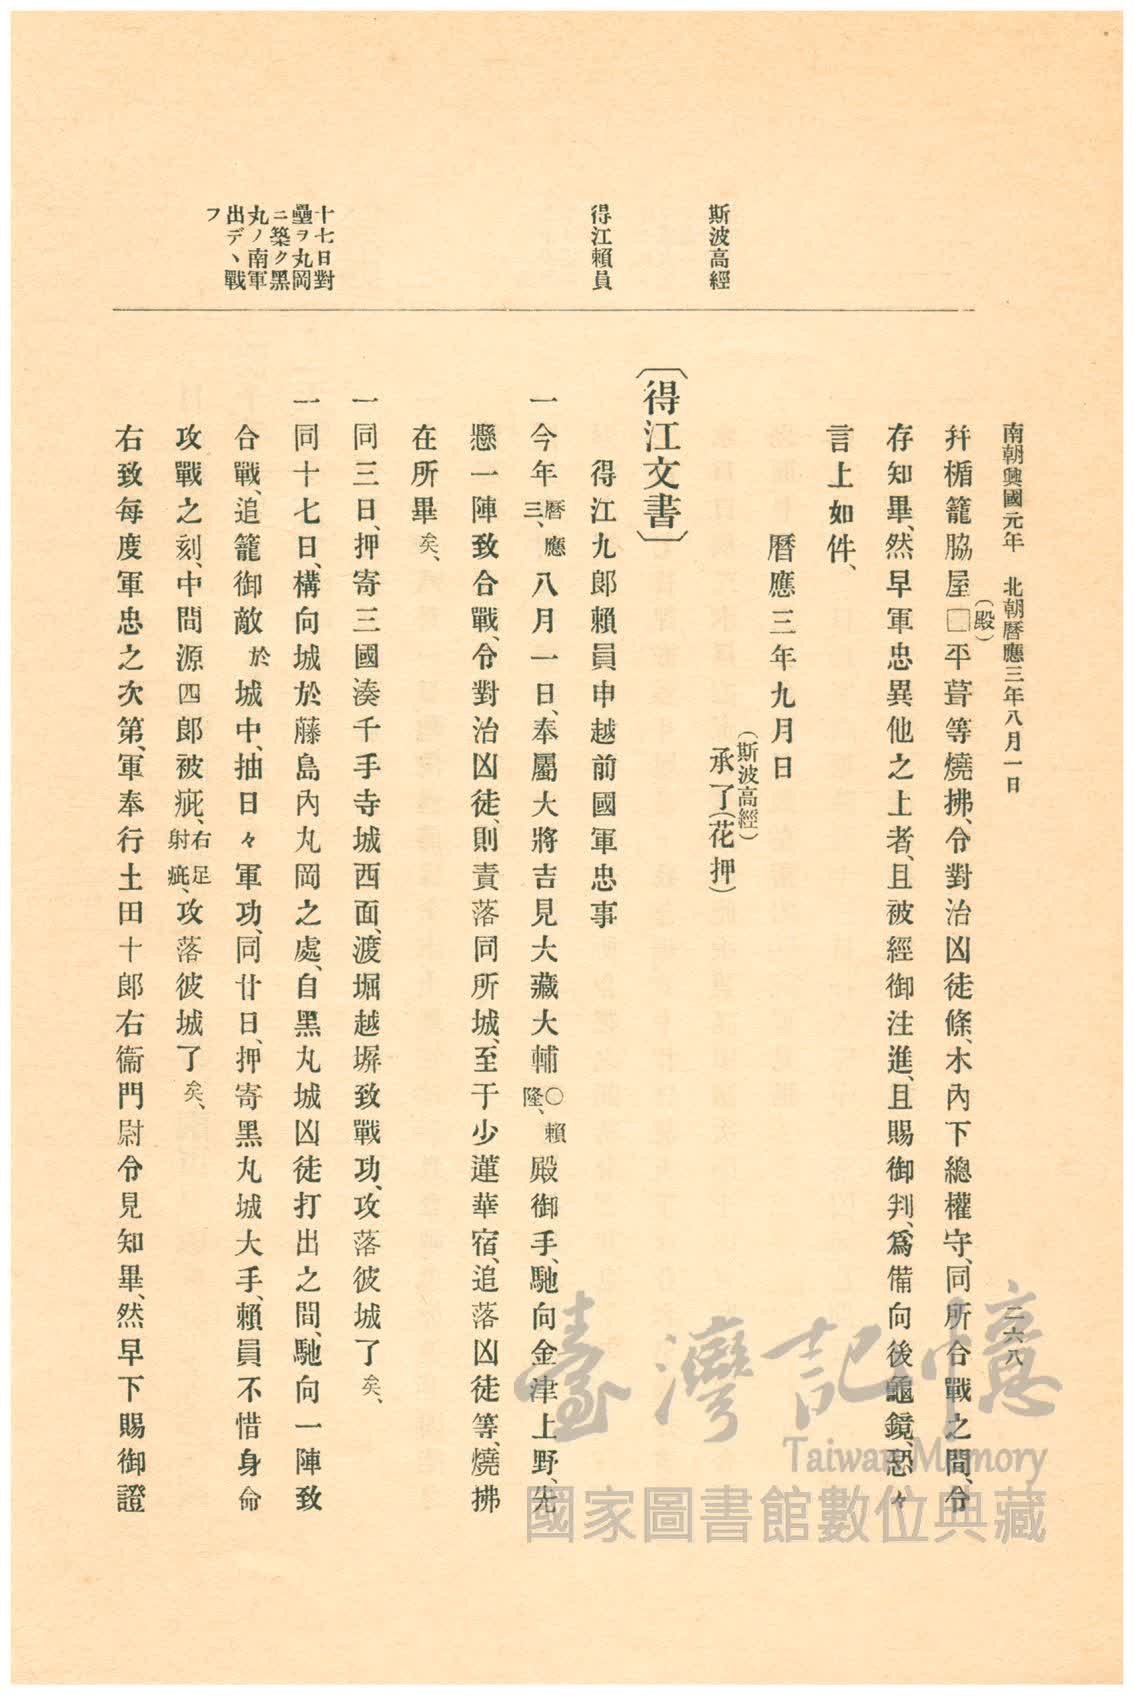 南朝興國元年 北朝曆應三年八月一日 二六八
幷楯籠脇屋□(殿)平葺等燒拂、令對治凶徒條、木內下總權守、同所合戰之間、令
存知畢、然早軍忠異他之上者、且被經御注進、且賜御判、爲備向後龜鏡、恐々
言上如件、
曆應三年九月日
(斯波高經)
承了(花押)
斯波高經
〔得江文書〕
得江九郎賴員申越前國軍忠事
得江賴員
一今年曆應三、八月一日、奉屬大將吉見大藏大輔○賴隆、殿御手、馳向金津上野、先
懸一陣致合戰、令對治凶徒、則責落同所城、至于少蓮華宿、追落凶徒等、燒拂
在所畢矣、
一同三日、押寄三國湊千手寺城西面、渡堀越塀致戰功、攻落彼城了矣、
一同十七日、構向城於藤島內丸岡之處、自黑丸城凶徒打出之間、馳向一陣致
合戰、追籠御敵於城中、抽日々軍功、同廿日、押寄黑丸城大手、賴員不惜身命
攻戰之刻、中間源四郎被疵、右足射疵、攻落彼城了矣、
十七日對
壘ヲ丸岡
ニ築ク黑
丸ノ南軍
出デ、戰
フ
右致每度軍忠之次第、軍奉行土田十郎右衞門尉令見知畢、然早下賜御證
臺灣記憶
Taiwan Memory
國家圖書館數位典藏